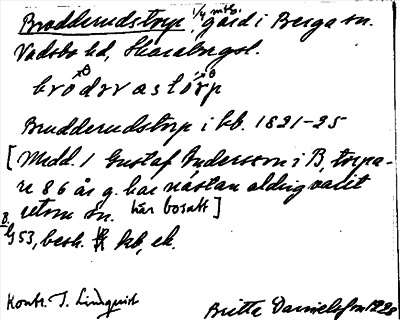 Brodderudstorp 1/4 mtl. gård i Berga sn.
Vadsbo hd, Skaraborgsl.
brodrrastorp
Brudderudstorp i kb. 1821-25
[Medd. 1 Gustaf Andersson i B, torpa-
re 86 år g. har nästan aldrig varit
utom sn. här bosatt]
B.
G 53, besk. kb, ek.
Kontr. J. Lindqvist Britta Danielsson 1928